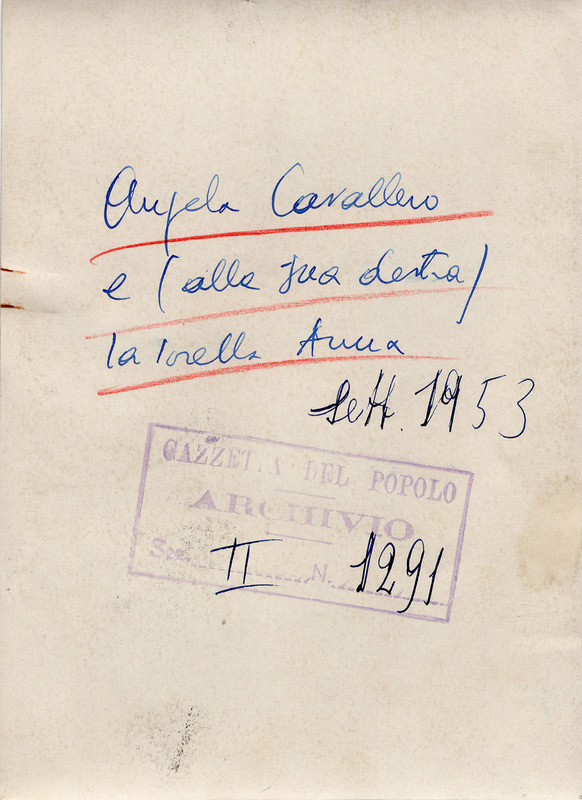 Angela Cavallero
e (alla sua destra)
la sorella Anna
Sett. 1953
GAZZETTA DEL POPOLO
ARCHIVIO
Sez. II N. 1291